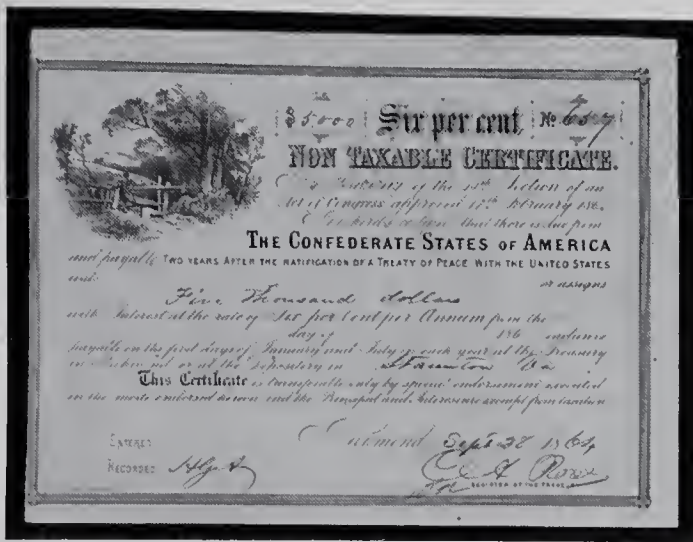 $5000 Six per cent, No 657
NON TAXABLE CERTIFICATE.
of the 14th Section of an
Act of Congress approved 17th February 186
that there is due from
THE CONFEDERATE STATES OF AMERICA
and payable TWO YEARS AFTER THE RATIFICATION OF A TREATY OF PEACE WITH THE UNITED STATES
unto or assigns
Five Thousand dollars
with Interest at the rate of Six per Cent per Annum from the
day of 186 inclusive
payable on the first days of January and July in each year at the Treasury
or at the Depository in Staunton Va
This Certificate is transferable only by special endorsement executed
in the mode endorsed hereon and the Principal and Interest are exempt from taxation
Richmond Sept 28 1864
ENTERED
RECORDED
REGISTER OF THE TREASURY